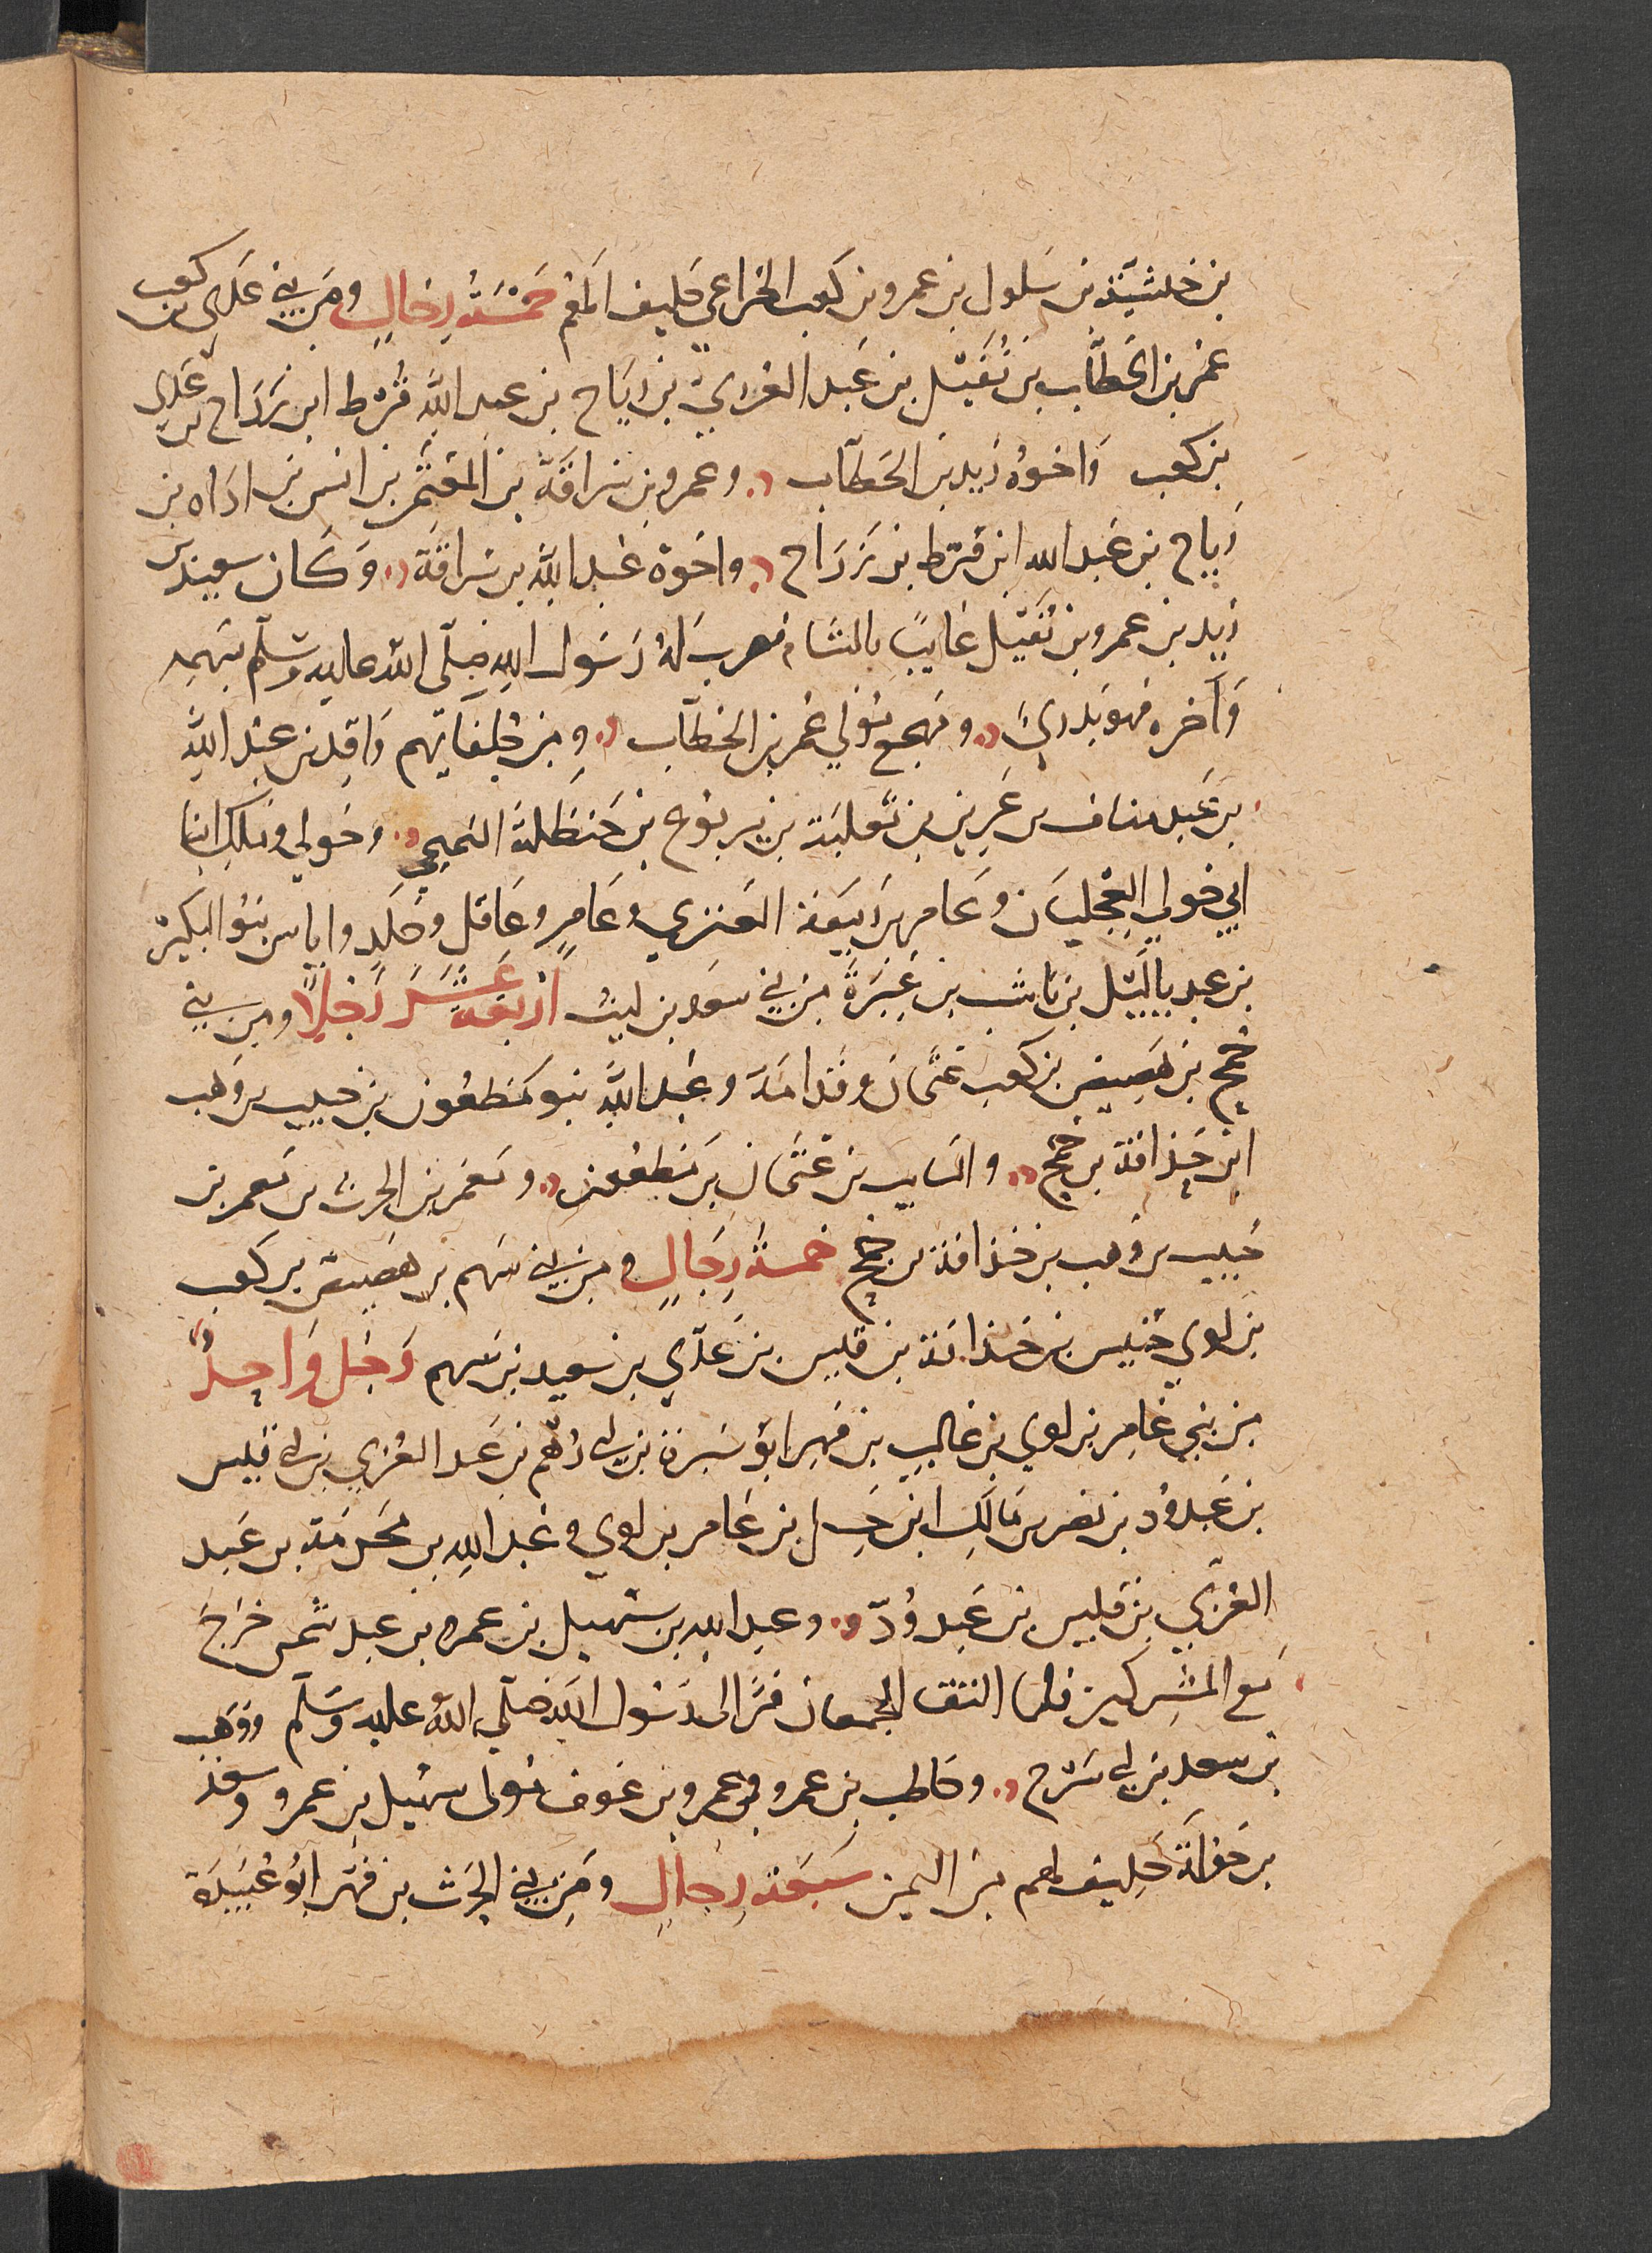 بن حبشية بن سلول بن عمرو بن كعب الخزاعي حليف لهم خمسة رجال ومن بني عدي بن كعب
عمر بن الخطاب بن نفيل بن عبد العزي بن رياح بن عبد الله قرط ابن رزاح بن عدي
بن كعب واخوه زيد بن الخطاب وعمرو بن سراقة بن المعتمر بن انس بن اداه بن
رياح بن عبد الله ابن قرط بن رزاح واخوه عبد الله بن سراقة وكان سعيد بن
زيد بن عمرو بن نفيل غايبا بالشام فضرب له رسول الله صلى الله عليه وسلم بسهمه
وآخره فهو بدري ومهجع مولي عمر بن الخطاب ومن حلفايهم واقد بن عبد الله
بن عبد مناف بن عرين بن ثعلبة بن يربوع بن حنظلة التميمي وخولي وملك ابنا
ابي خولي العجليان وعامر بن ربيعة العنزي وعامر وعاقل وخلد واياس بنو البكير
بن عبد ياليل بن ناشب بن غيرة من بني سعد بن ليث اربعة عشر رجلا ومن بني
جمح بن هصيص بن كعب عثمان وقدامة وعبد الله بنو مظعون بن حبيب بن وهب
ابن حذافة بن جمح والسايب بن عثمان بن مظعون ومعمر بن الحرث بن معمر بن
حبيب بن وهب بن حذافة بن جمح خمسة رجال ومن بني سهم بن هصيص بن كعب
بن لوي خنيس بن حذافة بن قيس بن عدي بن سعيد بن سهم رجل واحد
من بني عامر بن لوي بن غالب بن فهر ابو سبرة بن ابي رهم بن عبد العزي بن ابي قيس
بن عبد ود بن نصر بن مالك ابن حسل بن عامر بن لوي وعبد الله بن مخرمة بن عبد
العزي بن قيس بن عبد ود وعبد الله بن سهيل بن عمرو بن عبد شمس خرج
مع المشركين فلما التقا الجمعان فر الى رسول الله صلى الله عليه وسلم ووهب
بن سعد بن ابي سرح وحاطب بن عمرو وعمرو بن عوف مولى سهيل بن عمرو وسعد
بن خولة حليف لهم من اليمن سبعة رجال ومن بني الحرث بن فهر ابو عبيدة